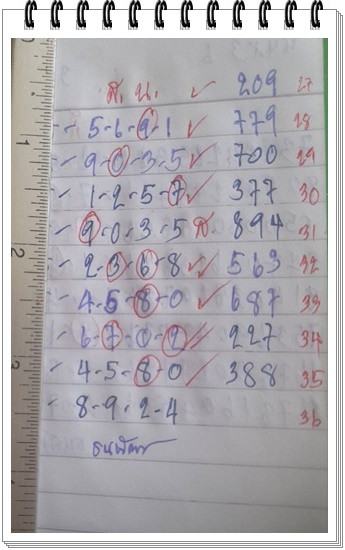 ส. น. ✓ 209 27
5-6-9-1 ✓ 779 28
9-0-3-5 ✓ 700 29
1-2-5-7 ✓ 377 30
9-0-3-5 ส. 894 31
2-3-6-8 ✓✓ 563 32
4-5-8-0 ✓ 687 33
6-7-0-2 ✓✓ 227 34
4-5-8-0 ✓ 388 35
8-9-2-4 36